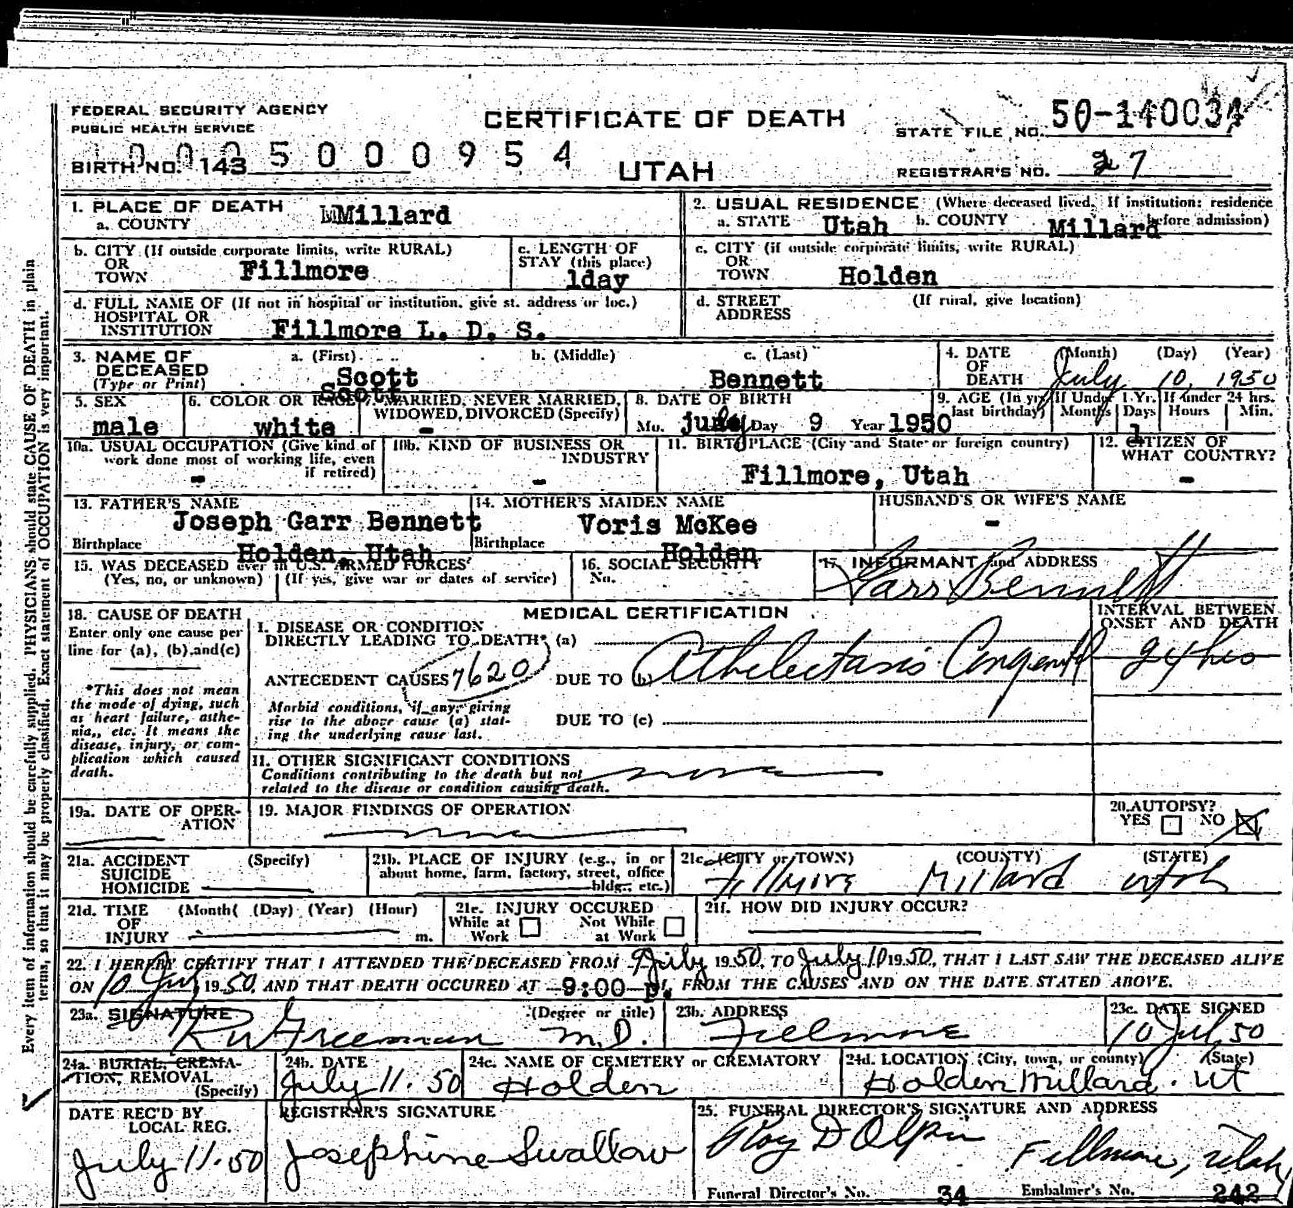 FEDERAL SECURITY AGENCY
PUBLIC HEALTH SERVICE
CERTIFICATE OF DEATH
STATE FILE NO. 50-140034
BIRTH NO. 143 0005000954
UTAH
REGISTRAR'S NO. 27
1. PLACE OF DEATH
a. COUNTY Millard
2. USUAL RESIDENCE (Where deceased lived. If institution: residence before admission)
a. STATE Utah b. COUNTY Millard
b. CITY (If outside corporate limits, write RURAL) OR TOWN Fillmore
c. LENGTH OF STAY (this place) 1day
c. CITY (if outside corporate limits, write RURAL) OR TOWN Holden
d. FULL NAME OF (If not in hospital or institution, give st. address or loc.) HOSPITAL OR INSTITUTION Fillmore L. D. S.
d. STREET ADDRESS (If rural, give location)
3. NAME OF DECEASED (Type or Print) a. (First) Scott b. (Middle) c. (Last) Bennett
4. DATE OF DEATH (Month) (Day) (Year) July 10, 1950
5. SEX male
6. COLOR OR RACE white
7. MARRIED, NEVER MARRIED, WIDOWED, DIVORCED (Specify) -
8. DATE OF BIRTH Mo. july Day 9 Year 1950
9. AGE (In yrs. last birthday) If Under 1 Yr. Months Days 1 If under 24 hrs. Hours Min.
10a. USUAL OCCUPATION (Give kind of work done most of working life, even if retired) -
10b. KIND OF BUSINESS OR INDUSTRY -
11. BIRTHPLACE (City and State or foreign country) Fillmore, Utah
12. CITIZEN OF WHAT COUNTRY? -
13. FATHER'S NAME Joseph Garr Bennett
Birthplace Holden, Utah
14. MOTHER'S MAIDEN NAME Voris McKee
Birthplace Holden
HUSBAND'S OR WIFE'S NAME -
15. WAS DECEASED ever in U.S. ARMED FORCES? (Yes, no, or unknown) (If yes, give war or dates of service)
16. SOCIAL SECURITY No.
17. INFORMANT and ADDRESS Garr Bennett
18. CAUSE OF DEATH
Enter only one cause per line for (a), (b), and (c)
*This does not mean the mode of dying, such as heart failure, asthenia, etc. It means the disease, injury, or complication which caused death.
MEDICAL CERTIFICATION
INTERVAL BETWEEN ONSET AND DEATH
I. DISEASE OR CONDITION DIRECTLY LEADING TO DEATH* (a)
ANTECEDENT CAUSES 7620 DUE TO (b) Athelectasis Congenital 24 hrs
Morbid conditions, if any, giving rise to the above cause (a) stating the underlying cause last.
DUE TO (c)
II. OTHER SIGNIFICANT CONDITIONS
Conditions contributing to the death but not related to the disease or condition causing death.
none
19a. DATE OF OPERATION
19. MAJOR FINDINGS OF OPERATION
20. AUTOPSY? YES NO
21a. ACCIDENT SUICIDE HOMICIDE (Specify)
21b. PLACE OF INJURY (e.g., in or about home, farm, factory, street, office bldg., etc.)
21c. (CITY or TOWN) (COUNTY) (STATE)
Fillmore Millard Utah
21d. TIME OF INJURY (Month) (Day) (Year) (Hour) m.
21e. INJURY OCCURED While at Work Not While at Work
21f. HOW DID INJURY OCCUR?
22. I HEREBY CERTIFY THAT I ATTENDED THE DECEASED FROM 9 July 1950, TO July 10 1950, THAT I LAST SAW THE DECEASED ALIVE
ON 10 July 1950, AND THAT DEATH OCCURED AT 9:00 p. FROM THE CAUSES AND ON THE DATE STATED ABOVE.
23a. SIGNATURE (Degree or title) 23b. ADDRESS 23c. DATE SIGNED
Freeman M.D. Fillmore 10 Jul 50
24a. BURIAL, CREMATION, REMOVAL (Specify)
24b. DATE July 11. 50
24c. NAME OF CEMETERY or CREMATORY Holden
24d. LOCATION (City, town, or county) (State) Holden Millard. Ut
DATE REC'D BY LOCAL REG. July 11. 50
REGISTRAR'S SIGNATURE Josephine Swallow
25. FUNERAL DIRECTOR'S SIGNATURE AND ADDRESS
Roy D Olpin Fillmore, Utah
Funeral Director's No. 34 Embalmer's No. 242
Every item of information should be carefully supplied. PHYSICIANS should state CAUSE OF DEATH in plain
terms, so that it may be properly classified. Exact statement of OCCUPATION is very important.